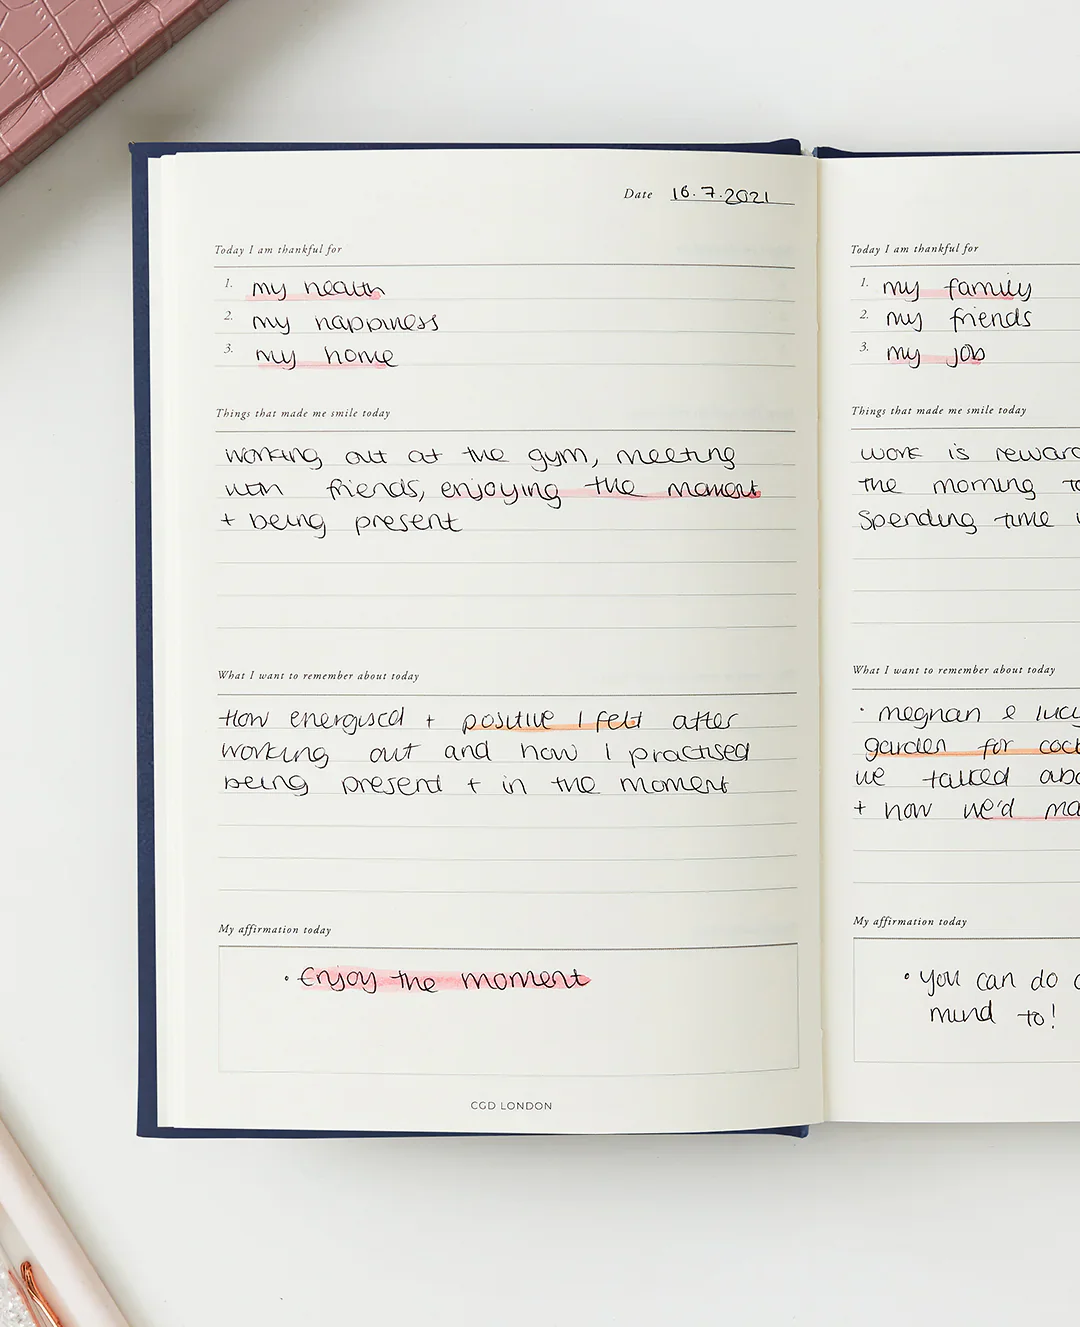 Date 16.7.2021
Today I am thankful for
1. my health
2. my happiness
3. my home
Things that made me smile today
working out at the gym, meeting
with friends, enjoying the moment
+ being present
What I want to remember about today
How energised + positive I felt after
working out and how I practised
being present + in the moment
My affirmation today
• Enjoy the moment
CGD LONDON
Today I am thankful for
1. my family
2. my friends
3. my job
Things that made me smile today
work is
the morning
spending time
What I want to remember about today
• meghan & lucy
garden for
we talked
+ how we'd
My affirmation today
• you can do
mind to!